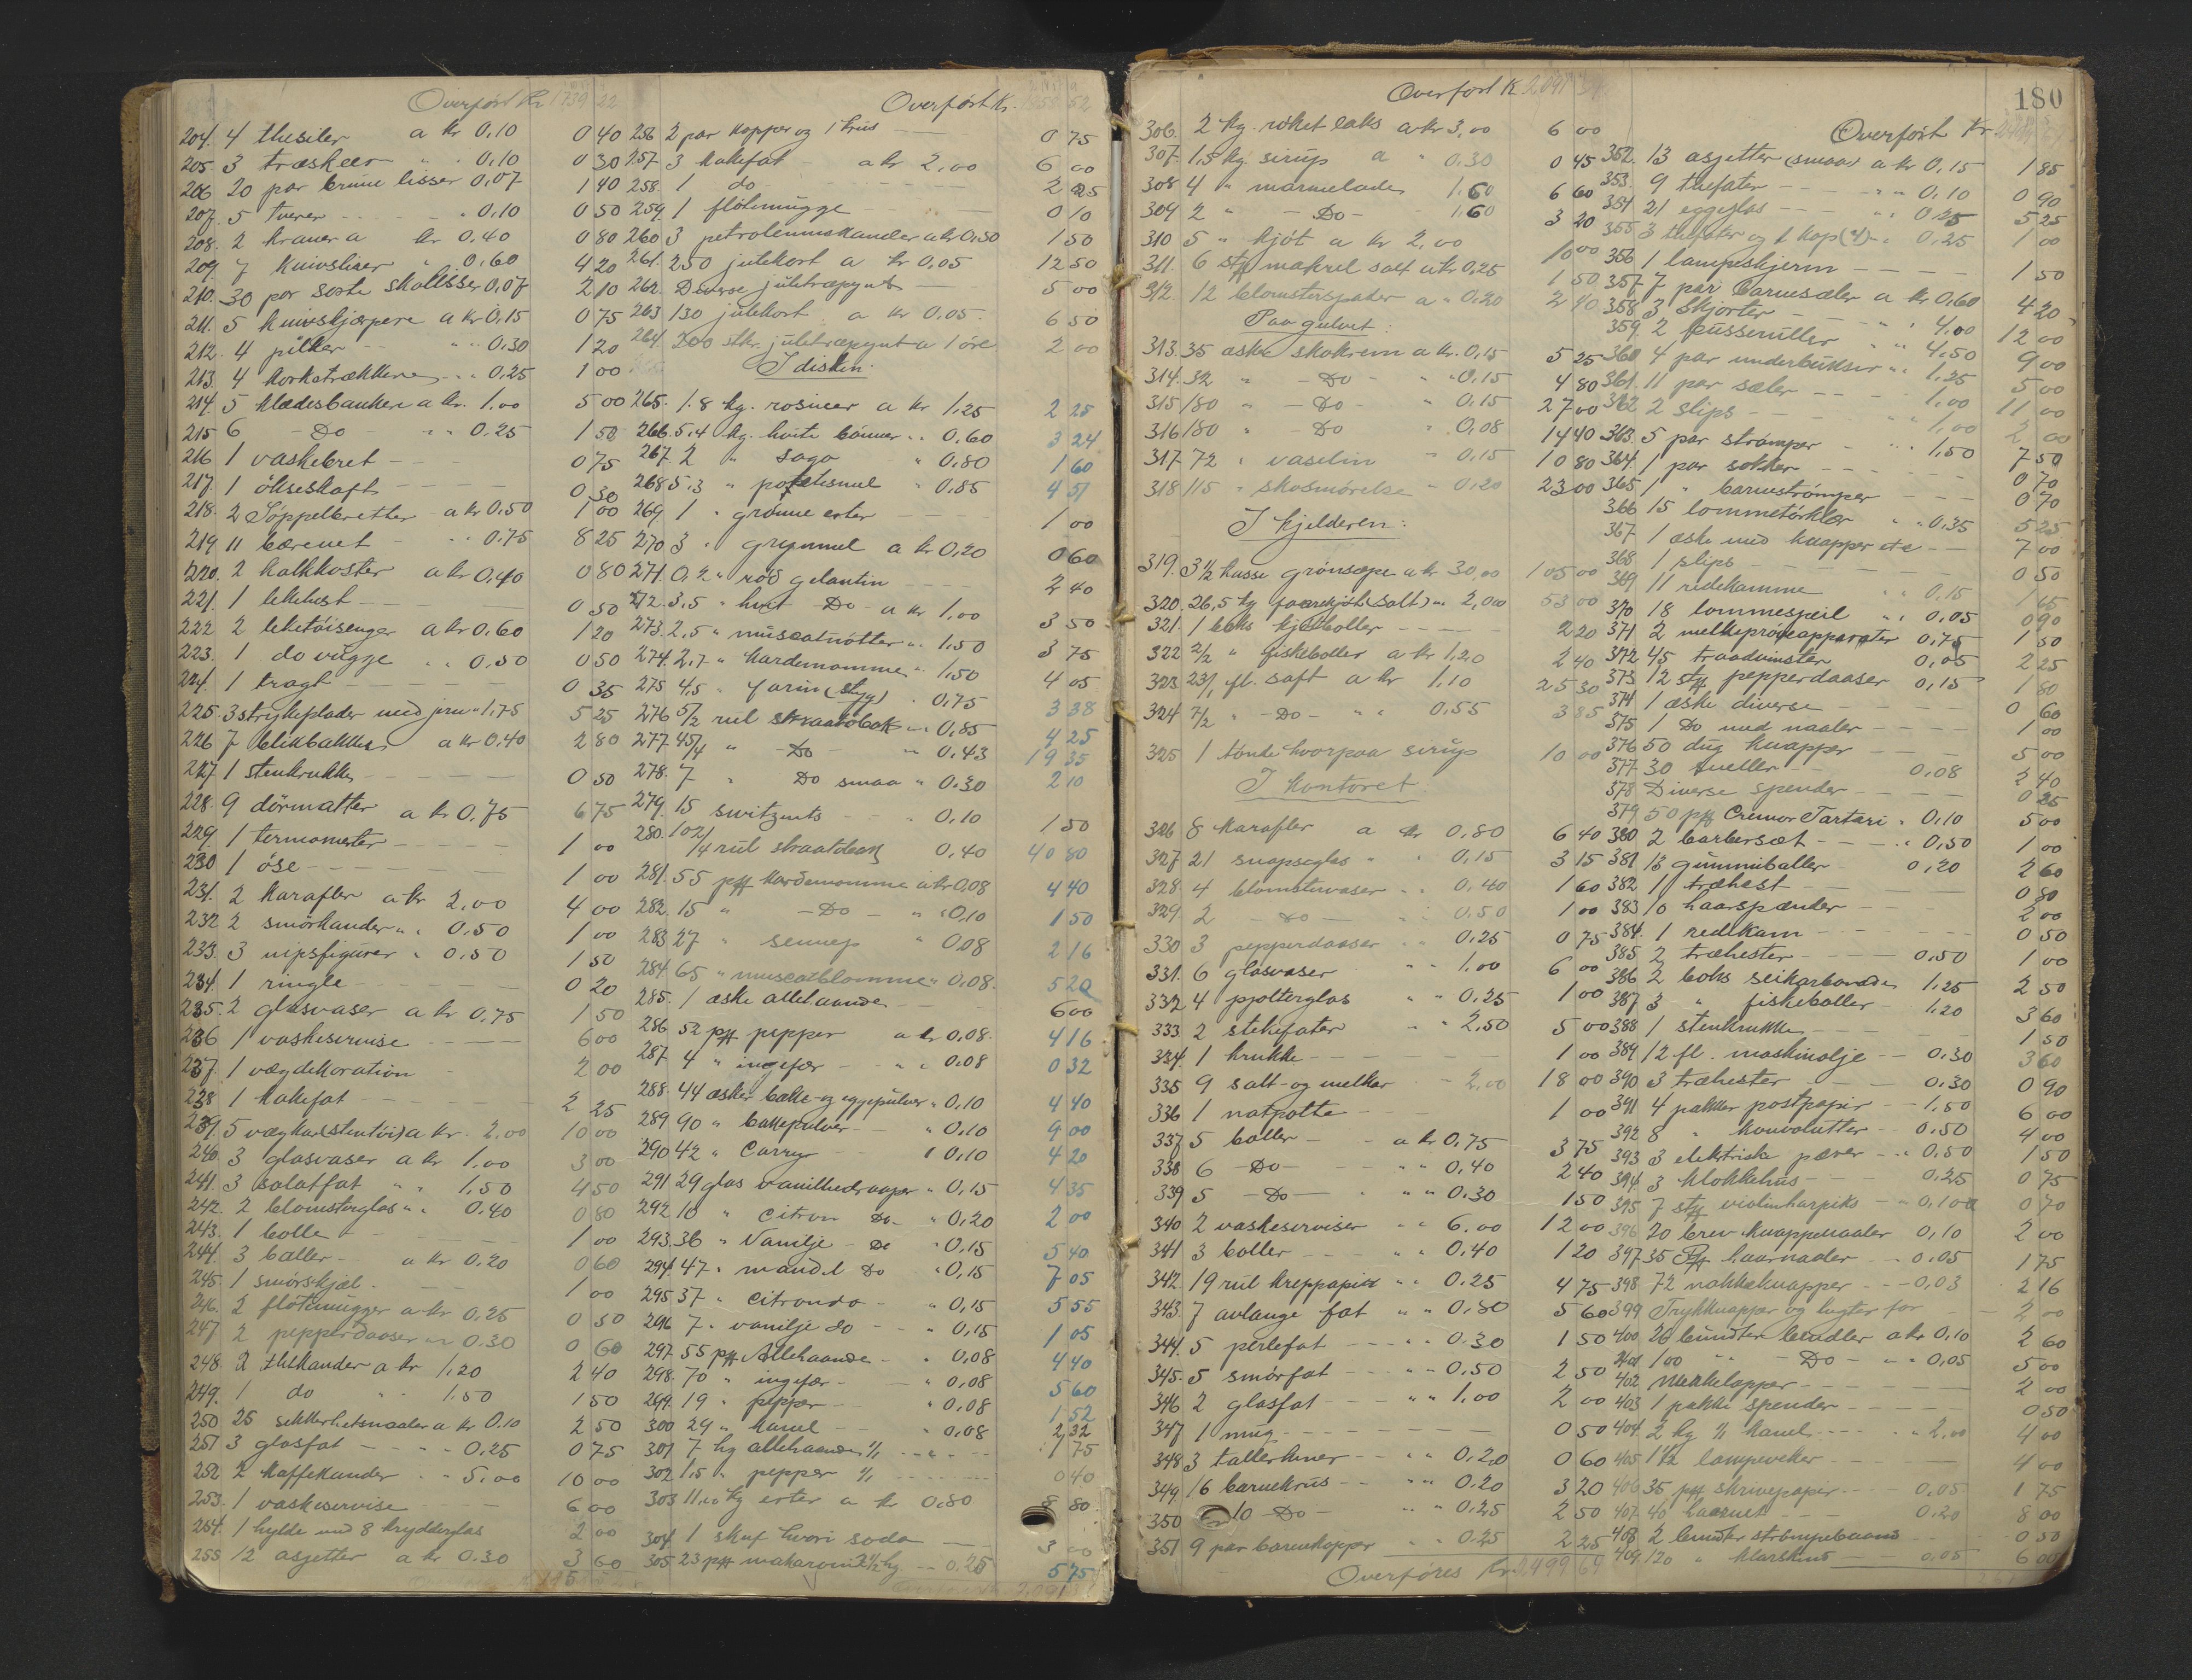 Overført Kr 1739 22
204. 4 thesiler a kr 0,10 0 40
205. 3 træskeer " " 0,10 0 30
206 20 par brune lisser 0,07 1 40
207. 5 tverer - - - " 0,10 0 50
208. 2 kraner a kr 0,40 0 80
209. 7 knivsliser " 0,60 4 20
210. 30 par sorte skolisser 0,07 2 10
211. 5 knivskjærpere a kr 0,15 0 75
212. 4 pilker - - " " 0,30 1 20
213. 4 korketrækkere - " " 0,25 1 00
214. 5 klædesbankere a kr. 1,00 5 00
215 6 - Do - " " 0,25 1 50
216 1 vaskebret - - - - 0 75
217. 1 økseskaft - - - - 0 30
218. 2 Søppelbretter - a kr 0,50 1 00
219 11 bærenet - " " 0,75 8 25
220. 2 kalkkoster a kr 0,40 0 80
221. 1 lekehest - - - - 0 50
222 2 leketøisenger a kr 0,60 1 20
223. 1 do vugge " " 0,50 0 50
224. 1 tragt - - - - 0 35
225. 3 strykeplader med jern " 1,75 5 25
226 7 blikbakker a kr 0,40 2 80
227. 1 stenkrukke - - - - 0 50
228. 9 dørmatter a kr 0,75 6 75
229. 1 termometer - - - - 1 00
230 1 øse - - - - 1 00
231. 2 karafler a kr 2,00 4 00
232 2 smørkander " " 0,50 1 00
233. 3 nipsfigurer " 0,50 1 50
234. 1 ringle - - - - 0 20
235. 2 glasvaser a kr 0,75 1 50
236 1 vaskeservise - - - 6 00
237. 1 vægdekoration - 2 00
238 1 kakefat - - - - 2 25
239. 5 vægkar (stentøi) a kr. 2,00 10 00
240. 3 glasvaser a kr 1,00 3 00
241. 3 salatfat " " 1,50 4 50
242. 2 blomsterglas " " 0,40 0 80
243. 1 bolle - - - - 1 00
244. 3 baller - a kr 0,20 0 60
245. 1 smørskjæl - - - 1 00
246. 2 fløtemugger a kr 0,25 0 50
247 2 pepperdaaser " " 0,30 0 60
248. 2 thekander a kr 1,20 2 40
249. 1 do " " 1,50 1 50
250 25 sikkerhetsnaaler a kr 0,10 2 50
251 3 glasfat - - - - 0,25 0 75
252 2 kaffekander " " 5,00 10 00
253. 1 vaskeservise - - 6 00
254. 1 hylde med 8 krydderglas 2 00
255 12 asjetter a kr 0,30 3 60
Overført Kr. 1855 52
256 2 par kopper og 1 krus - - 0 75
257. 3 kakefat - a kr 2,00 6 00
258. 1 do - - - - 2 25
259. 1 fløtemugge - - - 0 10
260 3 petroleumskander a kr 0,50 1 50
261. 250 julekort a kr 0,05 12 50
262. Diverse juletræpynt - 5 00
263 130 julekort a kr 0,05 6 50
264 200 stkr. juletræpynt a 1 øre 2 00
I disken:
265. 1.8 kg. rosiner a kr 1,25 2 25
266. 5,4 kg. hvite bønner " " 0,60 3 24
267. 2 " sago " 0,80 1 60
268 5,3 " potetesmel " 0,85 4 51
269 1 " grønne erter - - 1 00
270 3 " grynmel a kr 0,20 0 60
271. 0,2 " rød gelantin 2 40
272. 3,5 " hvit - Do - a kr 1,00 3 50
273. 2,5 " muscatnøtter " " 1,50 3 75
274. 2,7 " kardemomme " 1,50 4 05
275 4,5 " farin (styg) " 0,75 3 38
276 5/2 rul skraatobak " " 0,85 4 25
277. 45/4 " - Do - " " 0,43 19 35
278. 7 " Do smaa " 0,30 2 10
279. 15 switzents - - " 0,10 1 50
280. 102/4 rul skraatobak 0,40 40 80
281. 55 pk kardemomme a kr 0,08 4 40
282. 15 " - Do - " " 0,10 1 50
283 27 " sennep " 0,08 2 16
284. 65 " muscatblomme " 0,08. 5 20
285. 1 æske allehaande - - 6 00
286 52 pk pepper a kr 0,08. 4 16
287 4 " ingefær - " " 0,08 0 32
288. 44 æsker bakke- og eggepulver " 0,10 4 40
289 90 " bakkepulver - " 0,10 9 00
290 42 " Carry - - " 0,10 4 20
291 29 glas vanilledraaper " 0,15 4 35
292 10 " citron Do - " 0,20 2 00
293. 36 " Vanilje - Do " 0,15 5 40
294. 47 " mandel Do " 0,15 7 05
295 37 " citrondo - " 0,15 5 55
296 7 " vanilje do - " 0,15 1 05
297. 55 pk Allehaande - " 0,08 4 40
298. 70 " ingefær - " 0,08 5 60
299. 19 " pepper - " 0,08 1 52
300 29 " kanel - " 0,08 2 32
301 7 hg allehaande 1/1 - - " - - 1 75
302 1,5 " pepper 1/1 - - - 0 40
303 11,00 kg erter a kr 0,80 8 80
304 1 skuf hvori soda - 3 00
305 23 pk makaroni 2 1/2 kg - - 0,25 5 75
2,091
Overført K 2,091
306. 2 kg. røket laks a kr 3,00 6 00
307. 1,5 kg. sirup a " 0,30 0 45
308 4 " marmelade 1,60 6 60
309 2 " - Do - 1,60 3 20
310 5 " kjøt a kr 2,00 10 00
311. 6 stk makrel salt a kr 0,25 1 50
312. 12 blomsterspader a " 0,20 2 40
Paa gulvet:
313. 35 æske skokrem a kr. 0,15 5 25
314. 32 " - Do - " " 0,15 4 80
315 180 " - Do " 0,15 27 00
316 180 " - Do " 0,08 14 40
317. 72 " vaselin - 0,15 10 80
318 115 " skosmørelse - 0,20 23 00
I kjelderen:
319. 3 1/2 kasse grønsæpe a kr 30,00 105 00
320. 26,5 kg faarekjøt (salt) " " 2,00 53 00
321. 1 boks kjøtboller - - - 2 20
322 2/2 " fiskeboller a kr 1,20 2 40
323 23/1 fl. saft a kr 1,10 25 30
324 7/2 " - Do - " " 0,55 3 85
325 1 tønde hvorpaa sirup 10 00
I kontoret
326 8 karafler a kr 0,80 6 40
327 21 snapseglas " " 0,15 3 15
328. 4 blomstervaser " " 0,40 1 60
329. 2 - Do - " " 0,50 1 00
330 3 pepperdaaser " " 0,25 0 75
331. 6 glasvaser " " 1,00 6 00
332 4 pjolterglas " " 0,25 1 00
333 2 stekefater " " 2,50 5 00
334. 1 krukke - - - - 1 00
335 9 salt- og melkar - " 2,00 18 00
336 1 natpotte - - 1 00
337 5 boller - - a kr 0,75 3 75
338 6 - Do - - " " 0,40 2 40
339 5 - Do - " " " 0,30 1 50
340 2 vaskeserviser " " 6,00 12 00
341 3 boller - - " " 0,40 1 20
342. 19 rul kreppapir " " 0,25 4 75
343. 7 avlange fat " " 0,80 5 60
344. 5 perlefat - - " " 0,30 1 50
345. 5 smørfat - - " " 0,50 2 50
346 2 glasfat - - " " 1,00 2 00
347 1 mug - - - - 0 50
348 3 tallerkner - - " " 0,20 0 60
349. 16 barnekrus - - " " 0,20 3 20
350 10 - Do - " " 0,25 2 50
351 9 par barnekopper " " 0,25 2 25
Overføres kr. 2499 64
180
Overført Kr
352. 13 asjetter (smaa) a kr 0,15 1 85
353. 9 thefater - - - " " 0,10 0 90
354 21 eggeglas - - " " 0,25 5 25
355 3 thefater og 1 kop (4) - " 0,25 1 00
356 1 lampeskjerm - - - 1 50
357 7 par barnesæler a kr 0,60 4 20
358 3 skjorter - - " " 4,00 12 00
359 2 busseruller - " " 4,50 9 00
360 4 par underbukser " " 1,25 5 00
361. 11 par sæler - - 1,00 11 00
362 2 slips - - " " 1,00 2 00
363. 5 par strømper - " 1,50 7 50
364. 1 par sokker - - - 0 70
365 1 " barnestrømper - - 0 70
366 15 lommetørklær " " 0,35 5 25
367 1 æske med knapper etc - - 7 00
368 1 slips - - - - 0 50
369 11 redekamme " " 0,15 1 65
370 18 lommespeil " " 0,05 0 90
371 2 melkeprøveapparater 0,75 1 50
372 45 traadvinster 0,05 2 25
373 12 stk pepperdaaser 0,15 1 80
374 1 æske diverse - - - 0 60
375 1 Do med naaler - - - 1 00
376 50 dug knapper - - 5 00
377 30 sneller - - 0,08 2 40
378 Diverse spender - - - 0 25
379 50 pk Cremor Tartari " 0,10 5 00
380 2 barbersæt - - - " 0,50 1 00
381 13 gummiballer 0,20 2 60
382 1 træhest - - - - 0 80
383 10 haarspænder - - - 2 00
384. 1 redekam - - - - 0 50
385 2 træhester - - - 0,50 1 00
386 2 boks seikarbonader 1,25 2 50
387 3 " fiskeboller - 1,20 3 60
388 1 stenkrukke - - - 1 50
389 12 fl. maskinolje - - 0,30 3 60
390 3 træhester - - - 0,30 0 90
391 4 pakker postpapir - - 1,50 6 00
392 8 " konvolutter - - 0,50 4 00
393 3 elektriske pærer - - " 0,50 1 50
394 3 klokkehus - - - 0,25 0 75
395 7 stk violinharpiks - " 0,10 0 70
396 20 brev knappenaaler 0,10 2 00
397 35 Pk haarnaaler - " 0,05 1 75
398 72 nakkeknapper - - - 0,03 2 16
399 Trykknapper og lugter for - 2 00
400 26 bundter bendler a kr 0,10 2 60
401 100 " " - Do - " " 0,05 5 00
402 Merkelapper - - - 2 00
403 1 pakke spender - - - 0 50
404. 2 kg 1/1 kanel - - - " " 2,00 4 00
405 1 1/2 lampeveker - - - 4 00
406 35 pk skrivepapir - - - 0,05 1 75
407. 40 haarnet - - - 0,20 8 00
408 2 bundter strømpebaand - - 0 50
409, 120 " klorskins - - 0,05 6 00